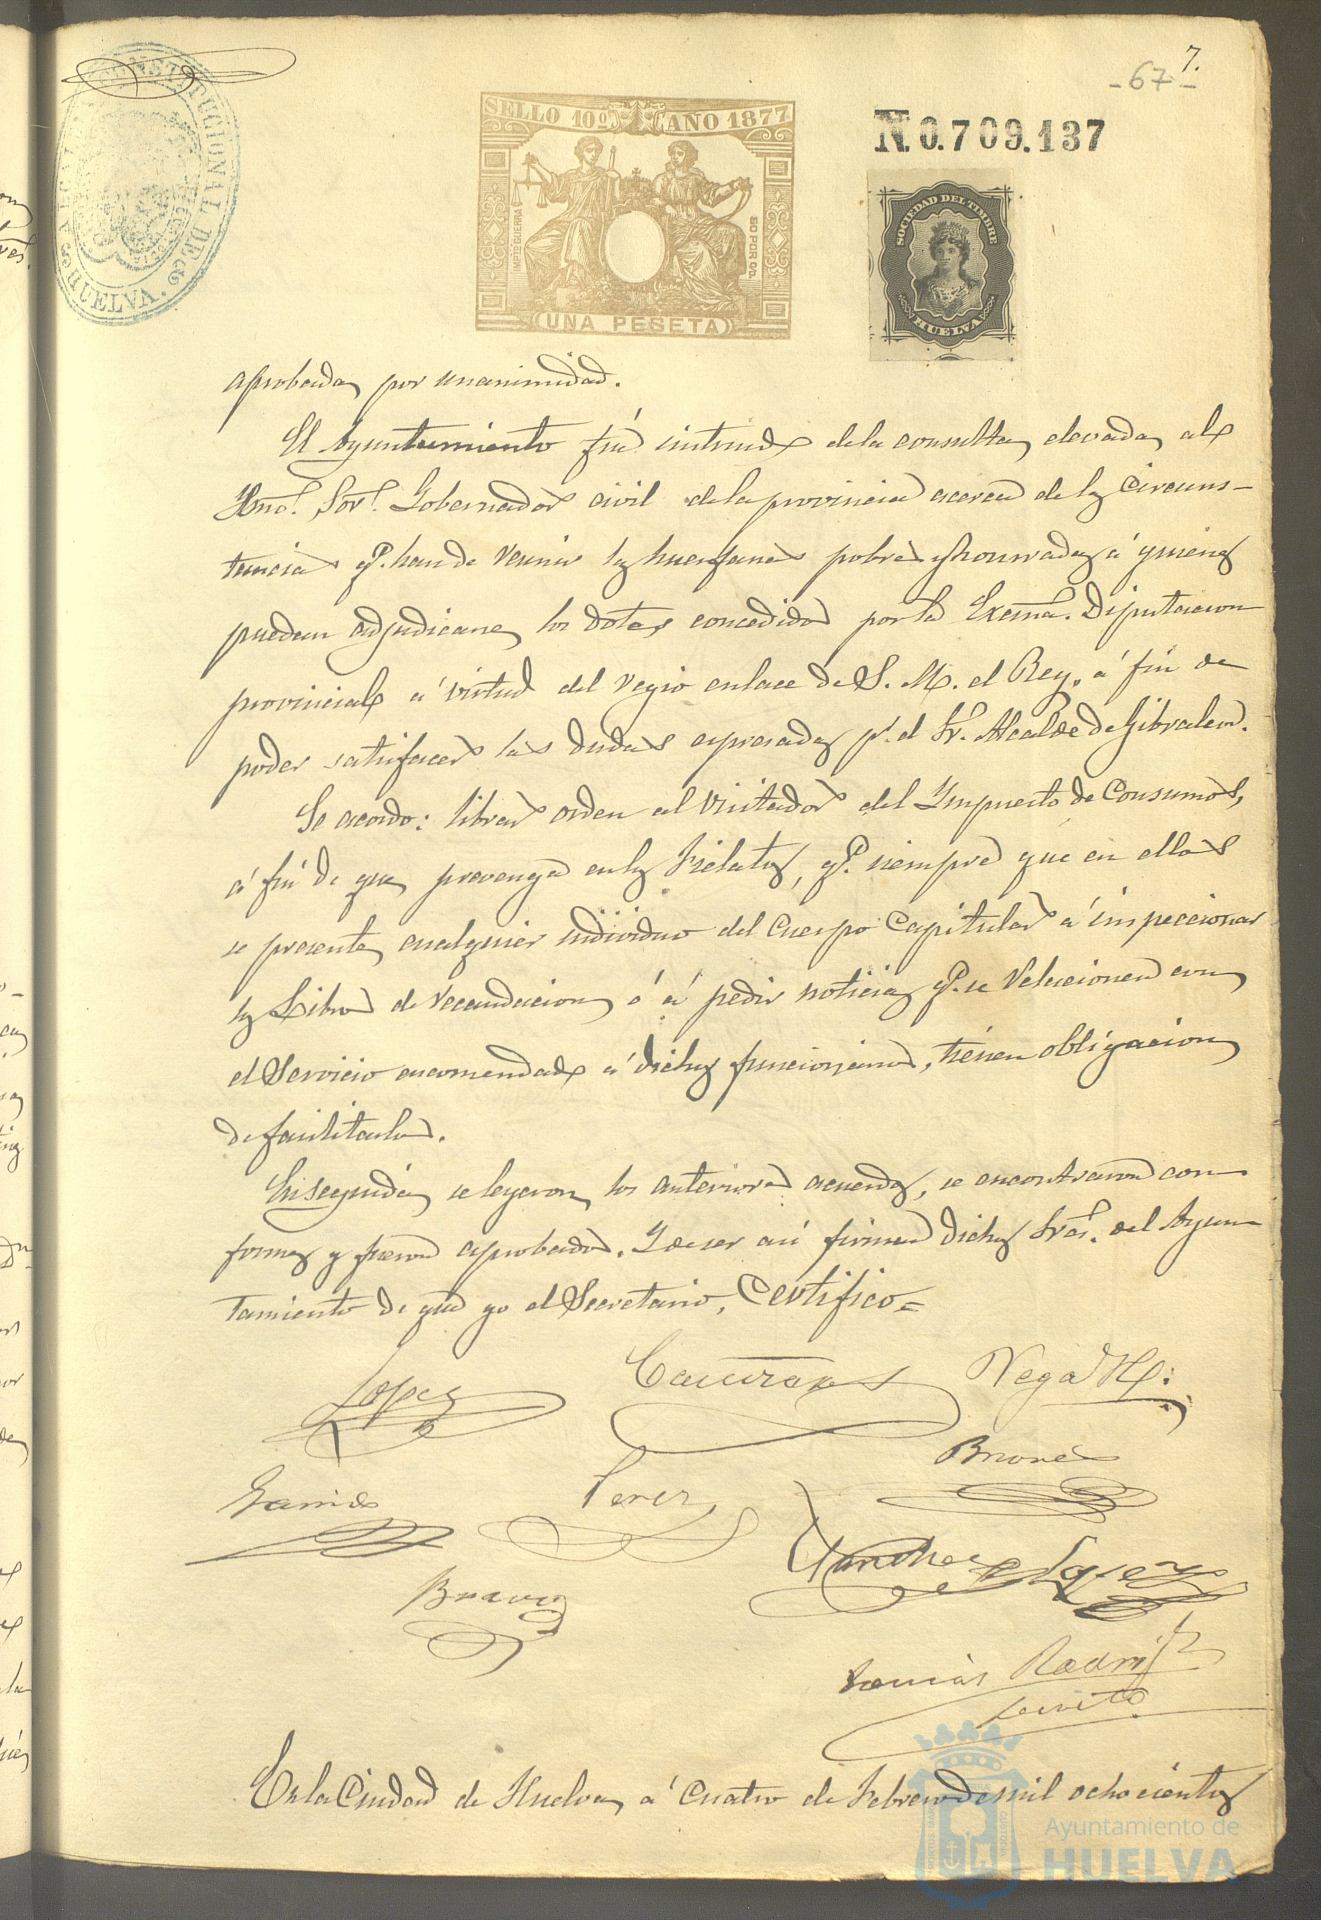 7.
- 67 -
CONSTITUCIONAL DE
HUELVA.
SELLO 10º AÑO 1877
IMPTO GUERRA
50 POR 00.
UNA PESETA
N. 0.709.137
SOCIEDAD DEL TIMBRE
HUELVA
aprobada por unanimidad.
El Ayuntamiento fué de la consulta elevada al
Gobernador civil de la provincia acerca de las circuns-
tancias qe. han de reunir las huerfanas pobres y honradas á quienes
puedan adjudicarse los dotes concedidos por la Excma. Diputacion
provincial á virtud del regio enlace de S. M. el Rey, á fin de
poder satisfacer las dudas expresadas pr. el Sr. Alcalde de Gibraleon.
Se acordó: librar orden al Visitador del Impuesto de Consumos,
á fin de que prevenga en los Fielatos, qe. siempre que en ellos
se presente cualquier individuo del Cuerpo Capitular á inspeccionar
los Libros de recaudacion ó á pedir noticias qe. se relacionen con
el Servicio encomendado á dichos funcionarios, tienen obligacion
de facilitarlos.
Enseguida se leyeron los anteriores acuerdos, se encontraron con-
formes y fueron aprobados. Y de ser así firman dichos Sres. del Ayun-
tamiento de que yo el Secretario, Certifico=
Lopez
Vega
Garrido
Perez
Briones
Bravo
Sanchez Lopez
Tomás Rodrigz
Secreto.
En la Ciudad de Huelva á cuatro de Febrero de mil ochocientos
Ayuntamiento de
HUELVA